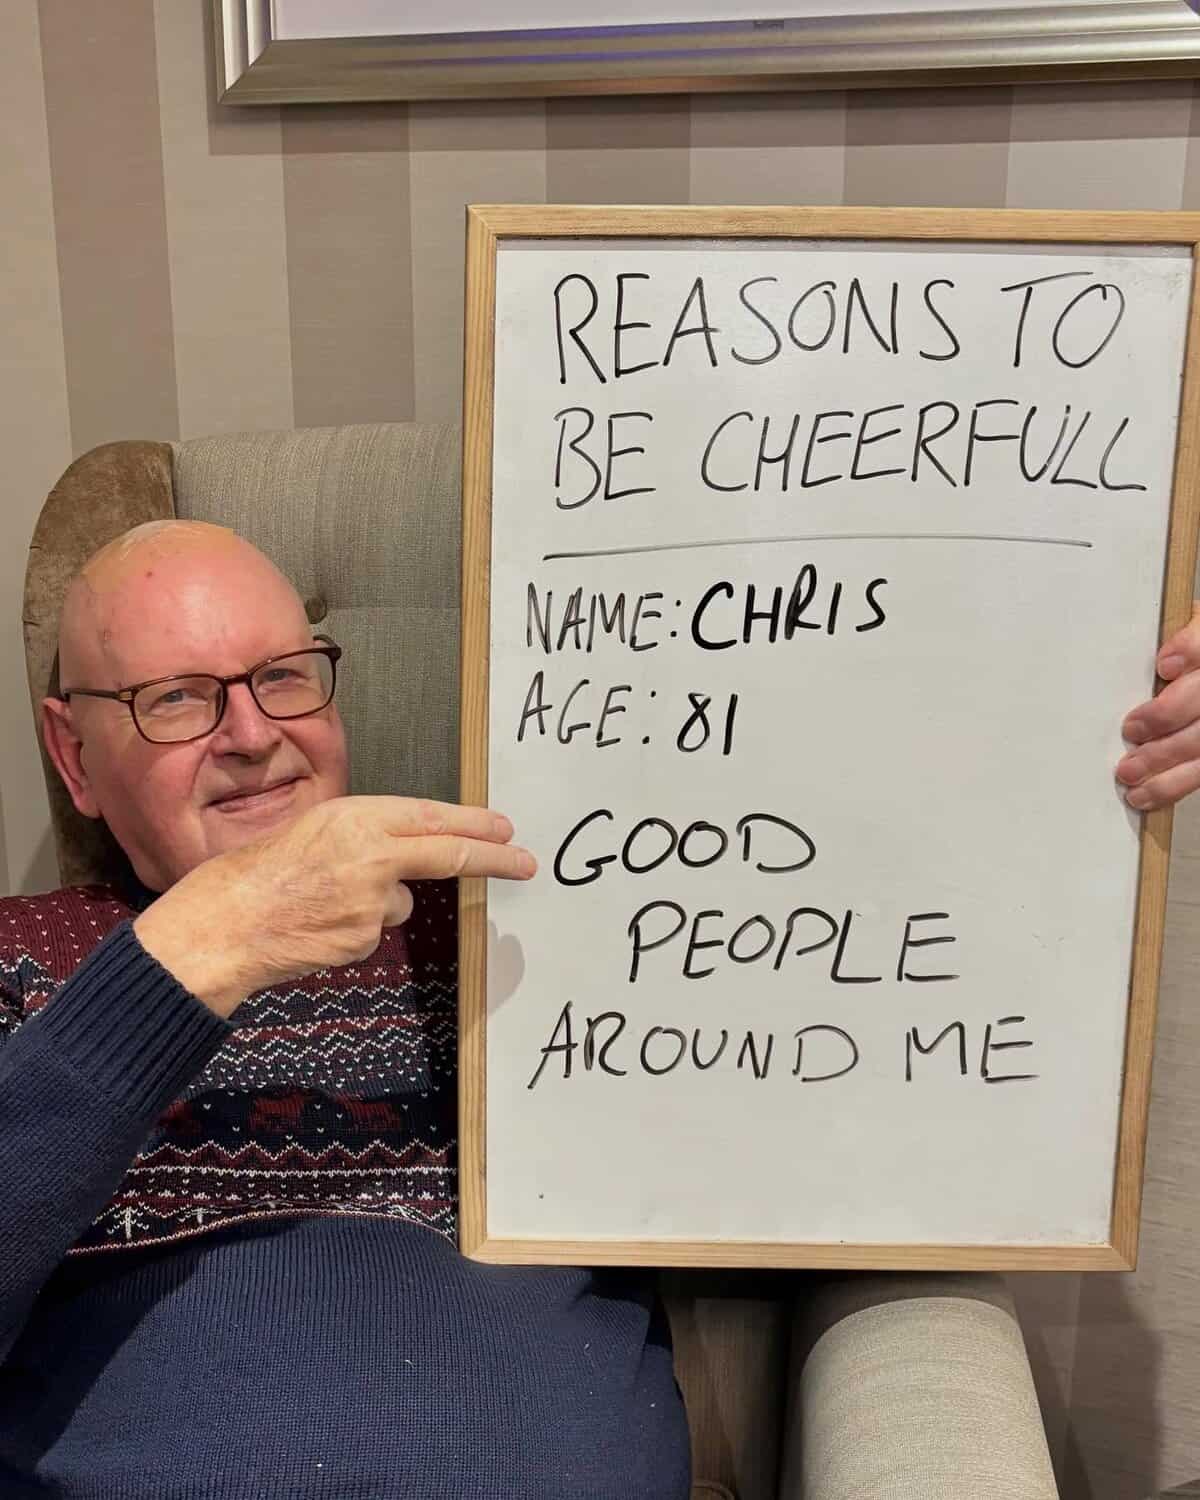 REASONS TO
BE CHEERFULL
NAME: CHRIS
AGE: 81
GOOD
PEOPLE
AROUND ME